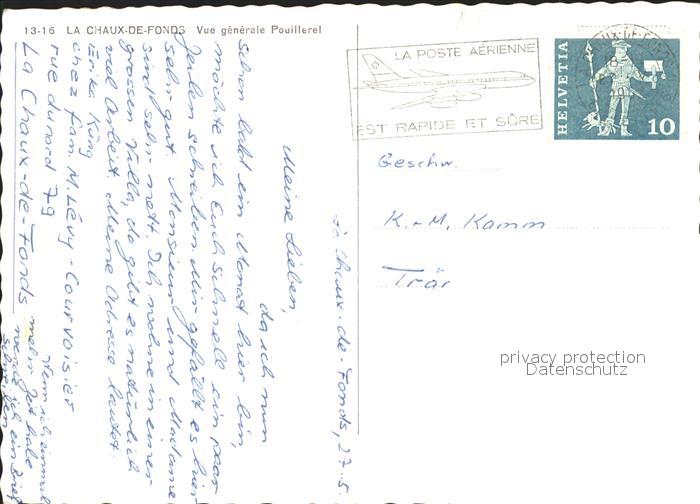 13-16 LA CHAUX-DE-FONDS Vue générale Pouillerel
LA POSTE AÉRIENNE
EST RAPIDE ET SÛRE
HELVETIA
10
Geschw.
K. + M. Kamm
Trär
privacy protection
Datenschutz
La Chaux-de-Fonds, 27.5
Meine Lieben,
da ich nun
schon bald ein Monat hier bin,
möchte ich Euch schnell ein paar
Zeilen schreiben. Mir gefällt es hier
sehr gut. Monsieur und Madame
sind sehr nett. Ich wohne in einer
grossen Villa, da gibt es natürlich
viel Arbeit. Meine Adresse lautet:
Erika Küng
chez fam. M. Lévy-Courvoisier
rue du nord 79
La Chaux-de-Fonds
Wenn ich einmal
mehr Zeit habe
werde ich ein
schreiben